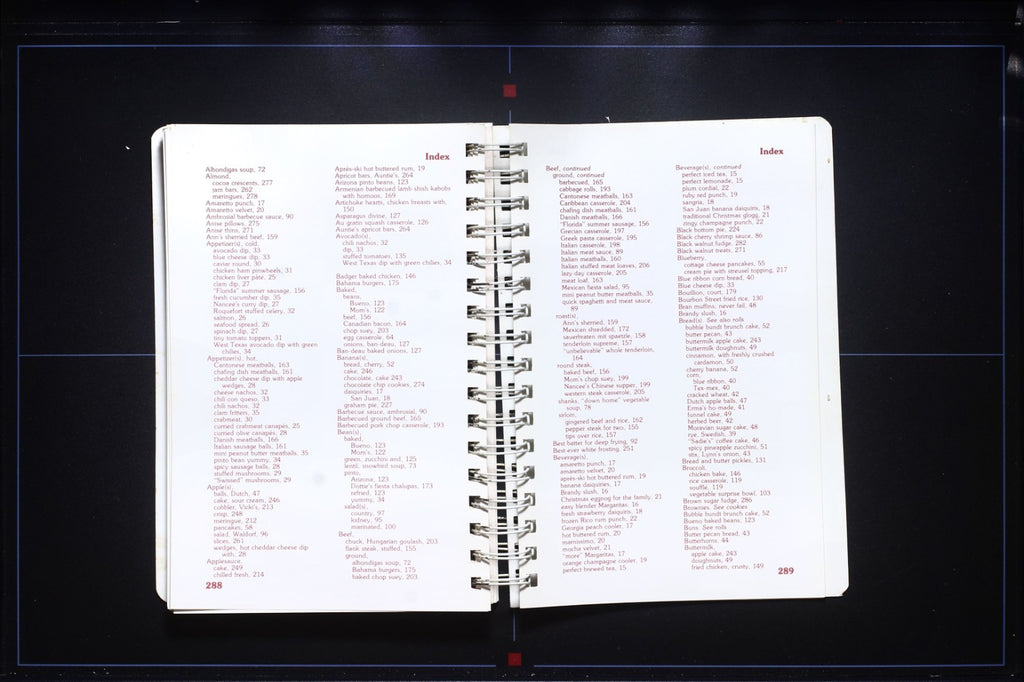 Index
Albondigas soup, 72
Almond,
cocoa crescents, 277
jam bars, 262
meringues, 278
Amaretto punch, 17
Amaretto velvet, 20
Ambrosial barbecue sauce, 90
Anise pillows, 275
Anise thins, 271
Ann's sherried beef, 159
Appetizer(s), cold,
avocado dip, 33
blue cheese dip, 33
caviar round, 30
chicken ham pinwheels, 31
chicken liver pâté, 25
clam dip, 27
"Florida" summer sausage, 156
fresh cucumber dip, 35
Nancee's curry dip, 27
Roquefort stuffed celery, 32
salmon, 26
seafood spread, 26
spinach dip, 27
tiny tomato toppers, 31
West Texas avocado dip with green
chilies, 34
Appetizer(s), hot,
Cantonese meatballs, 163
chafing dish meatballs, 161
cheddar cheese dip with apple
wedges, 28
cheese nachos, 32
chili con queso, 33
chili nachos, 32
clam fritters, 35
crabmeat, 30
curried crabmeat canapés, 25
curried olive canapés, 28
Danish meatballs, 166
Italian sausage balls, 161
mini peanut butter meatballs, 35
pinto bean yummy, 34
spicy sausage balls, 28
stuffed mushrooms, 29
"Swissed" mushrooms, 29
Apple(s),
balls, Dutch, 47
cake, sour cream, 246
cobbler, Vicki's, 213
crisp, 248
meringue, 212
pancakes, 58
salad, Waldorf, 96
slices, 261
wedges, hot cheddar cheese dip
with, 28
Applesauce,
cake, 249
chilled fresh, 214
288
Après-ski hot buttered rum, 19
Apricot bars, Auntie's, 264
Arizona pinto beans, 123
Armenian barbecued lamb shish kabobs
with homoos, 169
Artichoke hearts, chicken breasts with,
150
Asparagus divine, 127
Au gratin squash casserole, 126
Auntie's apricot bars, 264
Avocado(s),
chili nachos, 32
dip, 33
stuffed tomatoes, 135
West Texas dip with green chilies, 34
Badger baked chicken, 146
Bahama burgers, 175
Baked,
beans,
Bueno, 123
Mom's, 122
beef, 156
Canadian bacon, 164
chop suey, 203
egg casserole, 64
onions, ban-deau, 127
Ban-deau baked onions, 127
Banana(s),
bread, cherry, 52
cake, 246
chocolate, cake 243
chocolate chip cookies, 274
daiquiries, 17
San Juan, 18
graham pie, 227
Barbecue sauce, ambrosial, 90
Barbecued ground beef, 165
Barbecued pork chop casserole, 193
Bean(s),
baked,
Bueno, 123
Mom's, 122
green, zucchini and, 125
lentil, snowbird soup, 73
pinto,
Arizona, 123
Dottie's fiesta chalupas, 173
refried, 123
yummy, 34
salad(s),
country, 97
kidney, 95
marinated, 100
Beef,
chuck, Hungarian goulash, 203
flank steak, stuffed, 155
ground,
albondigas soup, 72
Bahama burgers, 175
baked chop suey, 203
Index
Beef, continued
ground, continued
barbecued, 165
cabbage rolls, 193
Cantonese meatballs, 163
Caribbean casserole, 204
chafing dish meatballs, 161
Danish meatballs, 166
"Florida" summer sausage, 156
Grecian casserole, 197
Greek pasta casserole, 195
Italian casserole, 198
Italian meat sauce, 89
Italian meatballs, 160
Italian stuffed meat loaves, 206
lazy day casserole, 205
meat loaf, 163
Mexican fiesta salad, 95
mini peanut butter meatballs, 35
quick spaghetti and meat sauce,
89
roast(s),
Ann's sherried, 159
Mexican shredded, 172
sauerbraten mit spaetzle, 158
tenderloin supreme, 157
"unbelievable" whole tenderloin,
164
round steak,
baked beef, 156
Mom's chop suey, 199
Nancee's Chinese supper, 199
western steak casserole, 205
shanks, "down home" vegetable
soup, 78
sirloin,
gingered beef and rice, 162
pepper steak for two, 155
tips over rice, 157
Best batter for deep frying, 92
Best-ever white frosting, 251
Beverage(s),
amaretto punch, 17
amaretto velvet, 20
après-ski hot buttered rum, 19
banana daiquiries, 17
Brandy slush, 16
Christmas eggnog for the family, 21
easy blender Margaritas, 16
fresh strawberry daiquiris, 18
frozen Rico rum punch, 22
Georgia peach cooler, 17
hot buttered rum, 20
marnissimo, 20
mocha velvet, 21
"more" Margaritas, 17
orange champagne cooler, 19
perfect brewed tea, 15
Beverage(s), continued
perfect iced tea, 15
perfect lemonade, 15
plum cordial, 22
ruby red punch, 19
sangria, 18
San Juan banana daiquiris, 18
traditional Christmas glogg, 21
zingy champagne punch, 22
Black bottom pie, 224
Black cherry shrimp sauce, 86
Black walnut fudge, 282
Black walnut treats, 271
Blueberry,
cottage cheese pancakes, 55
cream pie with streusel topping, 217
Blue ribbon corn bread, 40
Blue cheese dip, 33
Bouillon, court, 179
Bourbon Street fried rice, 130
Bran muffins, never fail, 48
Brandy slush, 16
Bread(s). See also rolls
bubble bundt brunch cake, 52
butter pecan, 43
buttermilk apple cake, 243
buttermilk doughnuts, 49
cinnamon, with freshly crushed
cardamon, 50
cherry banana, 52
corn,
blue ribbon, 40
Tex-mex, 40
cracked wheat, 42
Dutch apple balls, 47
Erma's ho-made, 41
funnel cake, 49
herbed beer, 42
Moravian sugar cake, 48
rye, Swedish, 39
"Sadie's" coffee cake, 46
spicy pineapple zucchini, 51
stix, Lynn's onion, 43
Bread and butter pickles, 131
Broccoli,
chicken bake, 146
rice casserole, 119
soufflé, 119
vegetable surprise bowl, 103
Brown sugar fudge, 286
Brownies. See cookies
Bubble bundt brunch cake, 52
Bueno baked beans, 123
Buns. See rolls
Butter pecan bread, 43
Butterhorns, 44
Buttermilk,
apple cake, 243
doughnuts, 49
fried chicken, crusty, 149
289